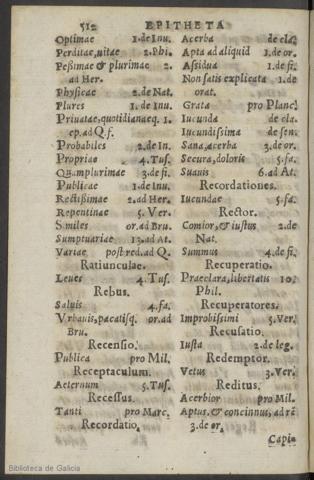 512 EPITHETA
Optimae 1.de Inu.
Perditae, uitae 2.Phi.
Peßimae & plurimae 2.
ad Her.
Physicae 2.de Nat.
Plures 1.de Inu.
Priuatae, quotidianaeq. 1.
ep.ad Q.f.
Probabiles 2.de In.
Propriae 4.Tus.
Quamplurimae 3.de fi.
Publicae 1.de Inu.
Rectißimae 2.ad Her.
Repentinae 5.Ver.
Similes or.ad Bru.
Sumptuariae 13.ad At.
Variae post red.ad Q.
Ratiunculae.
Leues 4.Tus.
Rebus.
Saluis 4.fa.
Vrbanis, pacatisq. or.ad
Bru.
Recensio.
Publica pro Mil.
Receptaculum.
Aeternum 5.Tus.
Recessus.
Tanti pro Marc.
Recordatio.
Acerba de cla.
Apta ad aliquid 1.de or.
Assidua 1.de fi.
Non satis explicata 1.de
orat.
Grata pro Planc.
Iucunda de cla.
Iucundissima de sen.
Sana, acerba 2.de or.
Secura, doloris 5.fa.
Suauis 6.ad At.
Recordationes.
Iucundae 5.fa.
Rector.
Comior, & iustus 2.de
Nat.
Summus 4.de fi.
Recuperatio.
Praeclara, libertatis 10.
Phil.
Recuperatores.
Improbißimi 5.Ver.
Recusatio.
Iusta 2.de leg.
Redemptor.
Vetus 3.Ver.
Reditus.
Acerbior pro Mil.
Aptus, & concinnus, ad rē
3.de or.
Capi=
Biblioteca de Galicia